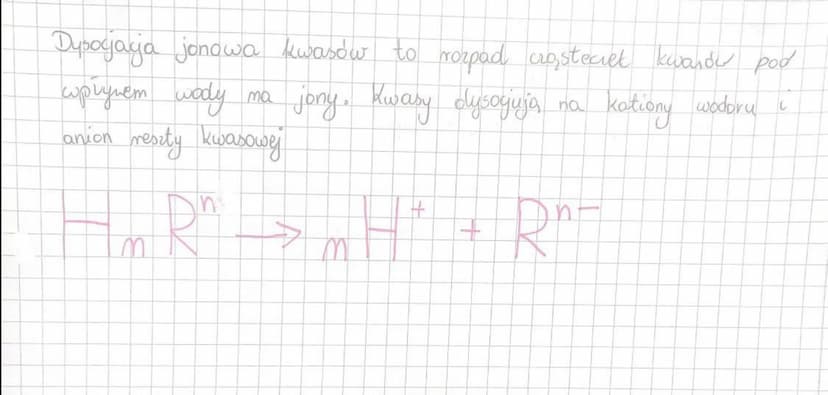 Dysocjacja jonowa kwasów to rozpad cząsteczek kwasów pod
wpływem wody ma jony. Kwasy dysocjują na kationy wodoru i
anion reszty kwasowej
HₘRⁿ → ₘH⁺ + Rⁿ⁻